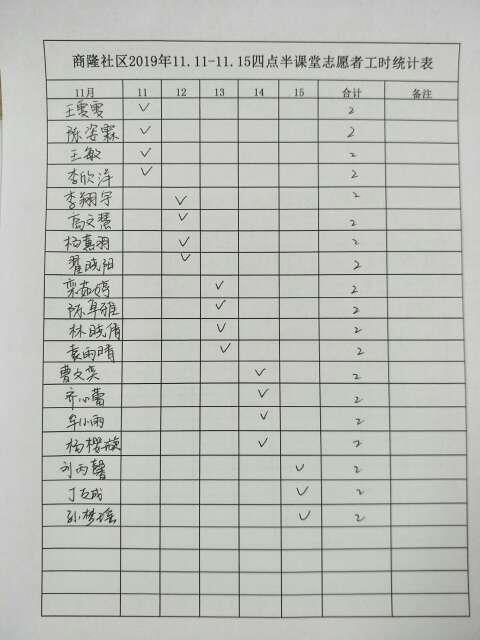 商隆社区2019年11.11-11.15四点半课堂志愿者工时统计表
11月 11 12 13 14 15 合计 备注
王雯雯 ✓ 2
陈姿霖 ✓ 2
王敏 ✓ 2
李欣洋 ✓ 2
李翔宇 ✓ 2
高文慧 ✓ 2
杨熹羽 ✓ 2
翟晓阳 ✓ 2
栾茹婷 ✓ 2
陈卓雅 ✓ 2
林晓倩 ✓ 2
袁雨晴 ✓ 2
曹文奕 ✓ 2
齐心蕾 ✓ 2
牟小雨 ✓ 2
杨樱璇 ✓ 2
刘丙馨 ✓ 2
丁友成 ✓ 2
孙梦瑶 ✓ 2